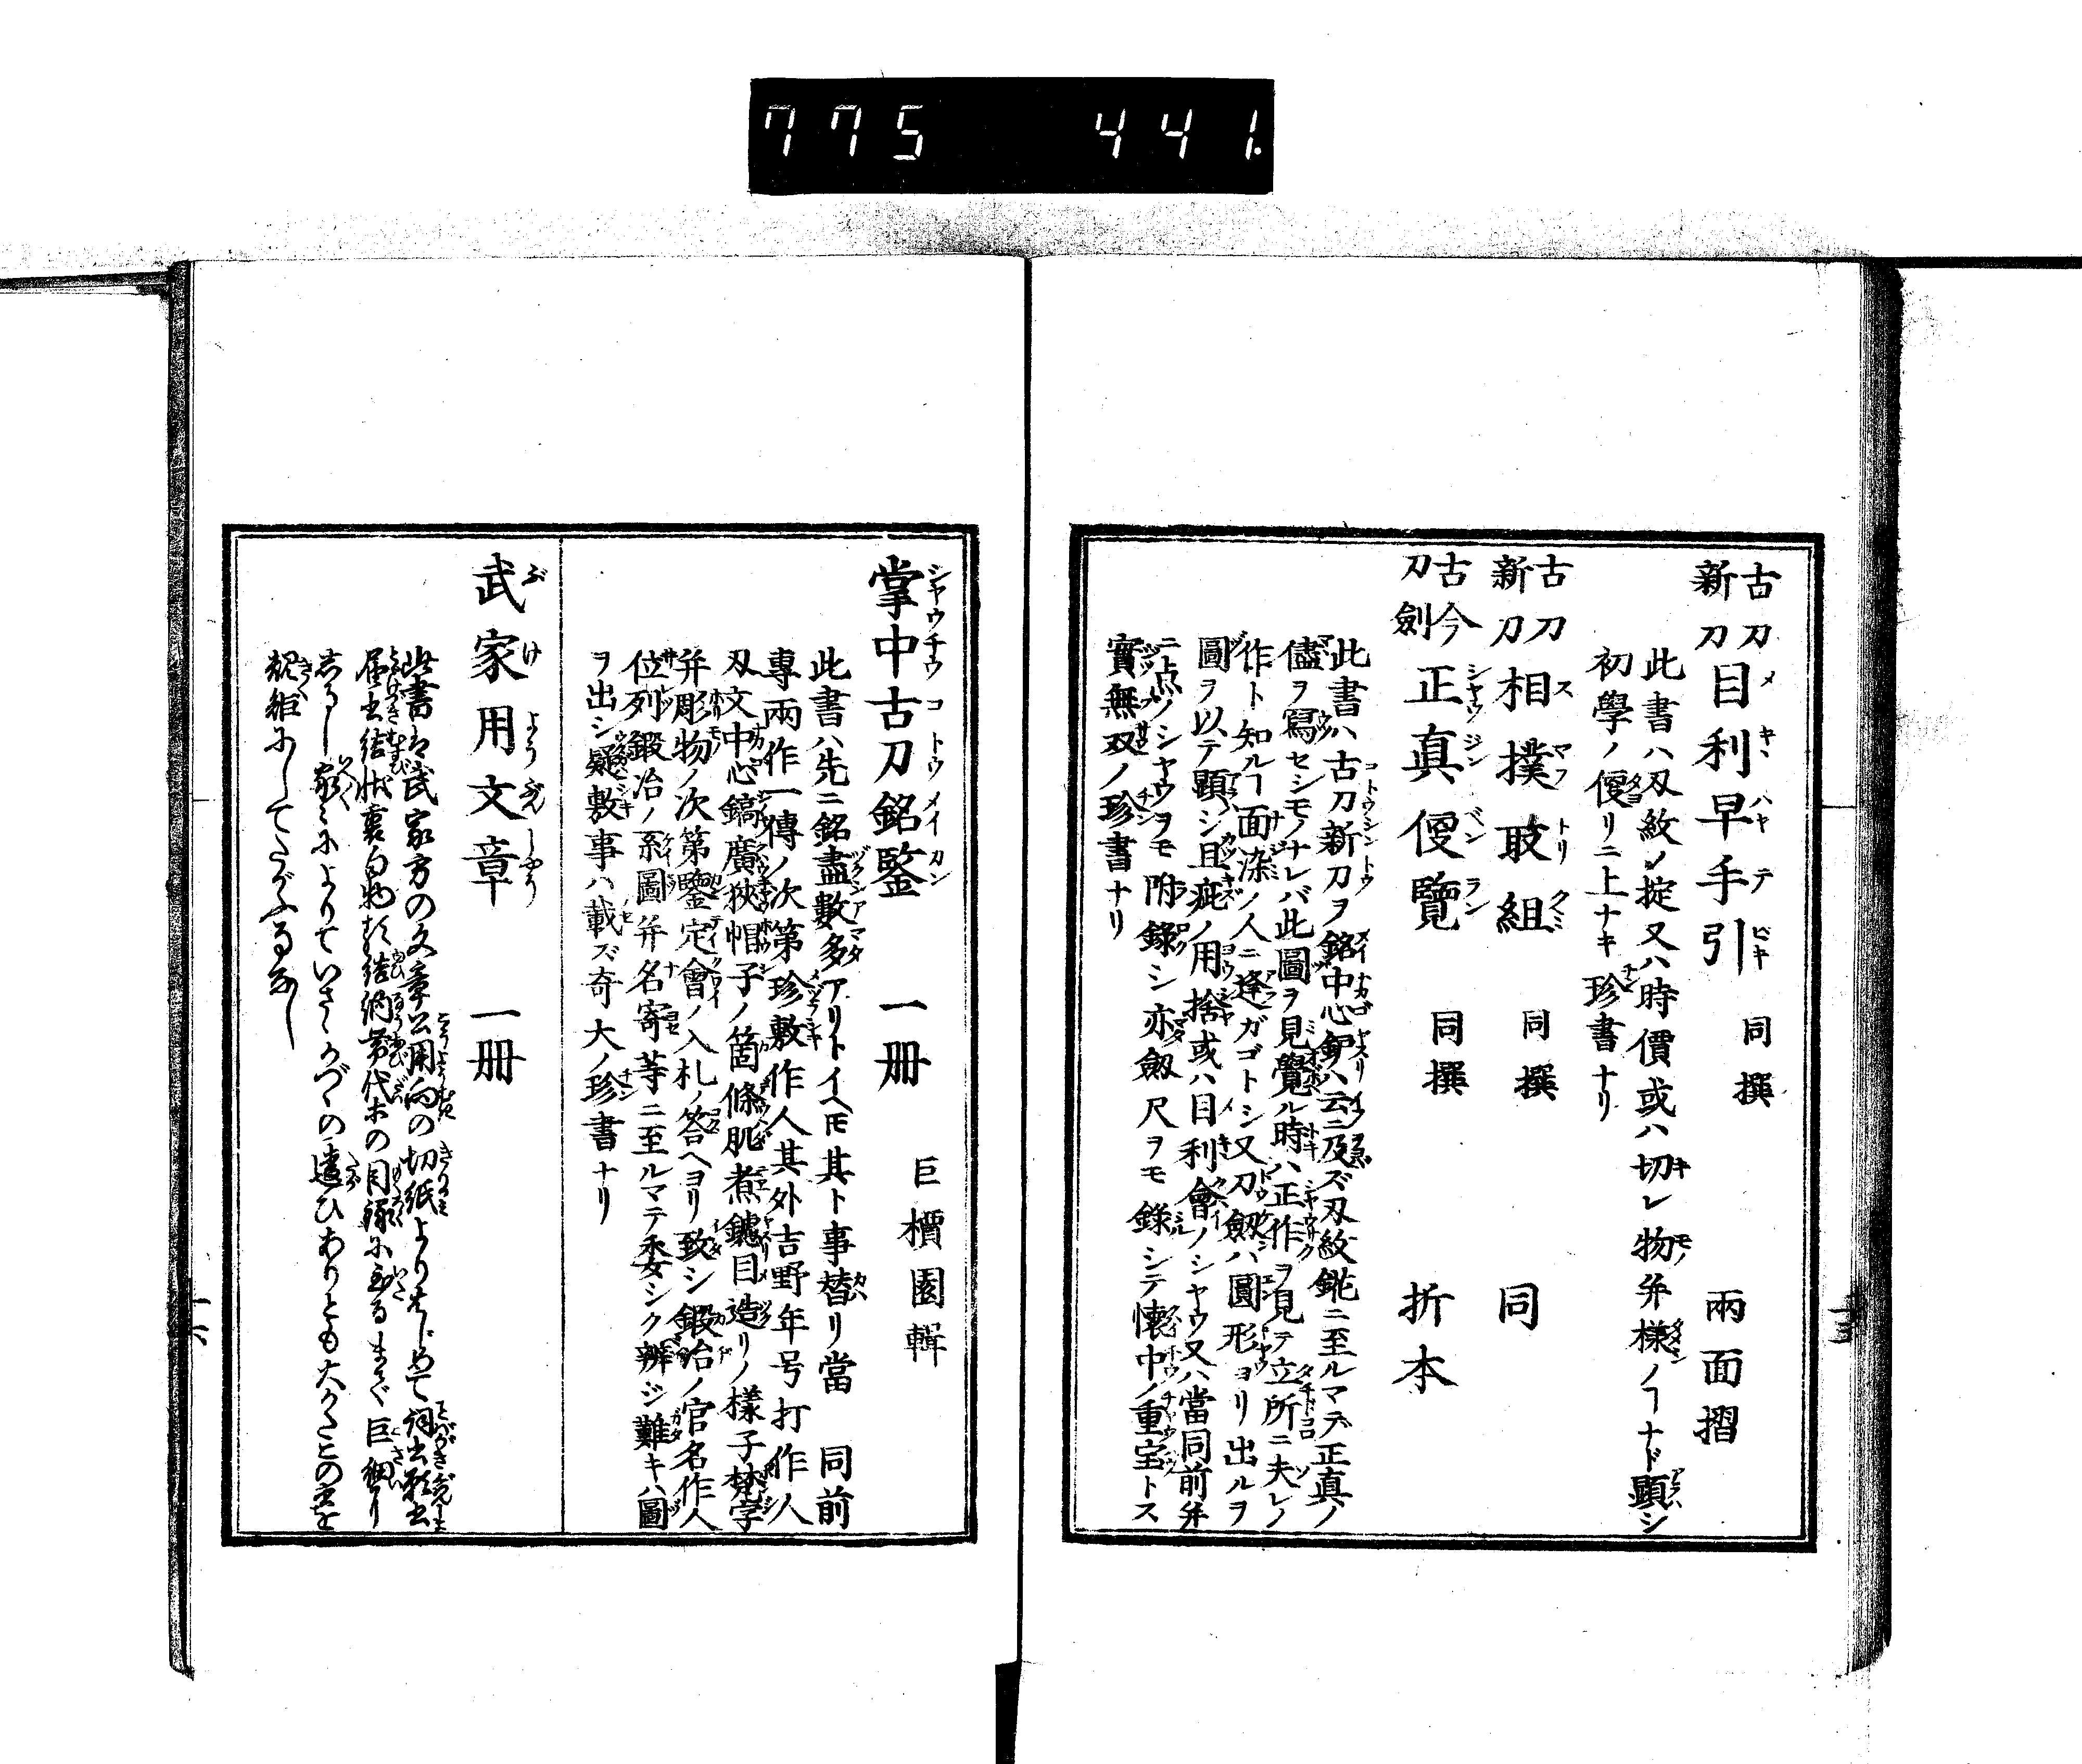 775 441.
古刀新刀目利早手引 同撰 兩面摺
此書ハ刄紋ノ掟又ハ時價或ハ切レ物并樣ノヿナド顕シ
初學ノ便リニ上ナキ珍書ナリ
古刀新刀相撲取組 同撰 同
古今刀劍正真便覽 同撰 折本
此書ハ古刀新刀ヲ銘中心鈩ハ云ニ及ズ刄紋鉈ニ至ルマデ正真ノ
儘ヲ寫セシモノナレバ此圖ヲ見覺ル時ハ正作ヲ見テ立所ニ夫レノ
作ト知ルヿ面染ノ人ニ逢ガゴトシ又刀劔ハ圓形ヨリ出ルヲ
圖ヲ以テ顕シ且疵ノ用捨或ハ目利會ノシヤウ又ハ當同前并
ニ点ノシヤウヲモ附録シ亦劔尺ヲモ錄シテ懐中ノ重宝トス
實無双ノ珍書ナリ
掌中古刀銘鑒 一冊 巨櫃園輯
此書ハ先ニ銘盡數多アリトイヘ𪜈其ト事替リ當同前
專兩作一傳ノ次第珍敷作人其外吉野年号打作人
刄文中心鎬廣狹帽子ノ箇條肌煮鑢目造リノ樣子梵字
并彫物ノ次第鑒定會ノ入札ノ答ヘヨリ致シ鍛冶ノ官名作人
位列鍛冶ノ系圖并名寄等ニ至ルマテ委シク辨ジ難キハ圖
ヲ出シ疑敷事ハ載ズ奇大ノ珍書ナリ
武家用文章 一冊
此書は武家方の文章公用向の切紙よりはじめて詞書願書
届書結状裏白物結納帯代ホの目録に至るまで巨細に
しるし家々によりていさゝかづゝの違ひありとも大かたこの書を
規矩にしてたがふるなし
十六